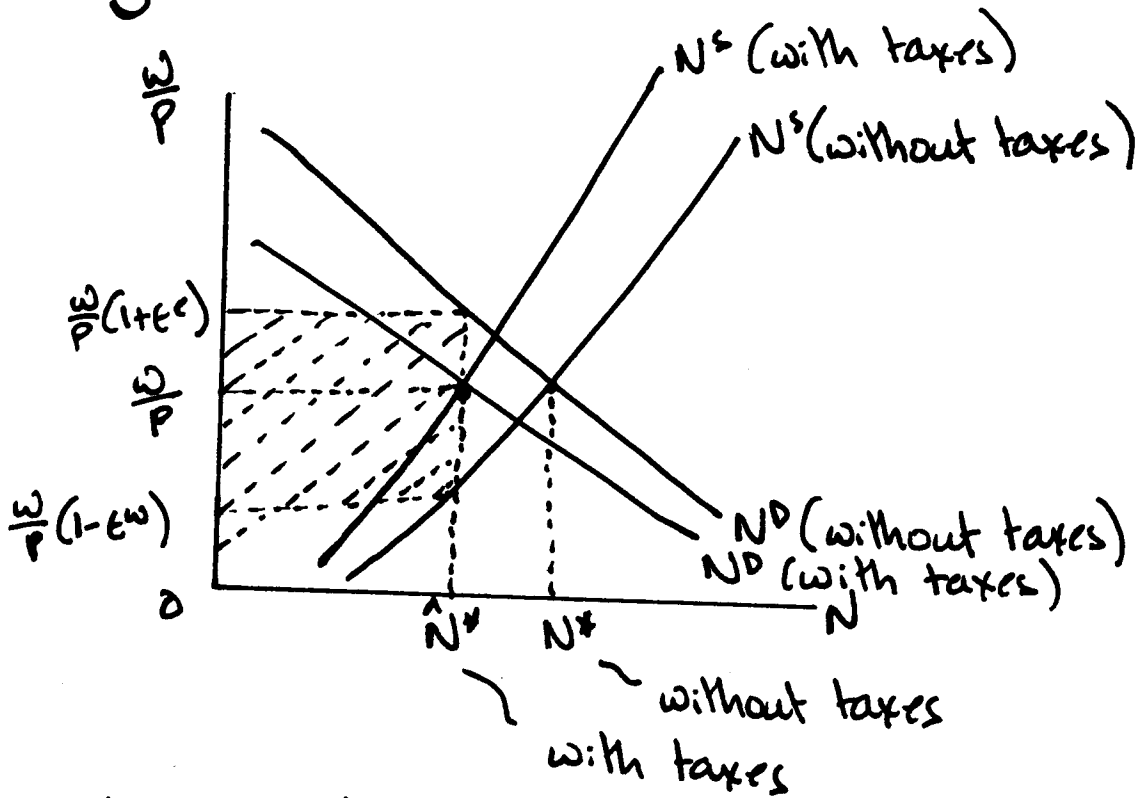 W/P
N^s (with taxes)
N^s (without taxes)
W/P (1+t^e)
W/P
W/P (1-t^w)
N^D (without taxes)
N^D (with taxes)
0
N̂*
N*
N
without taxes
with taxes